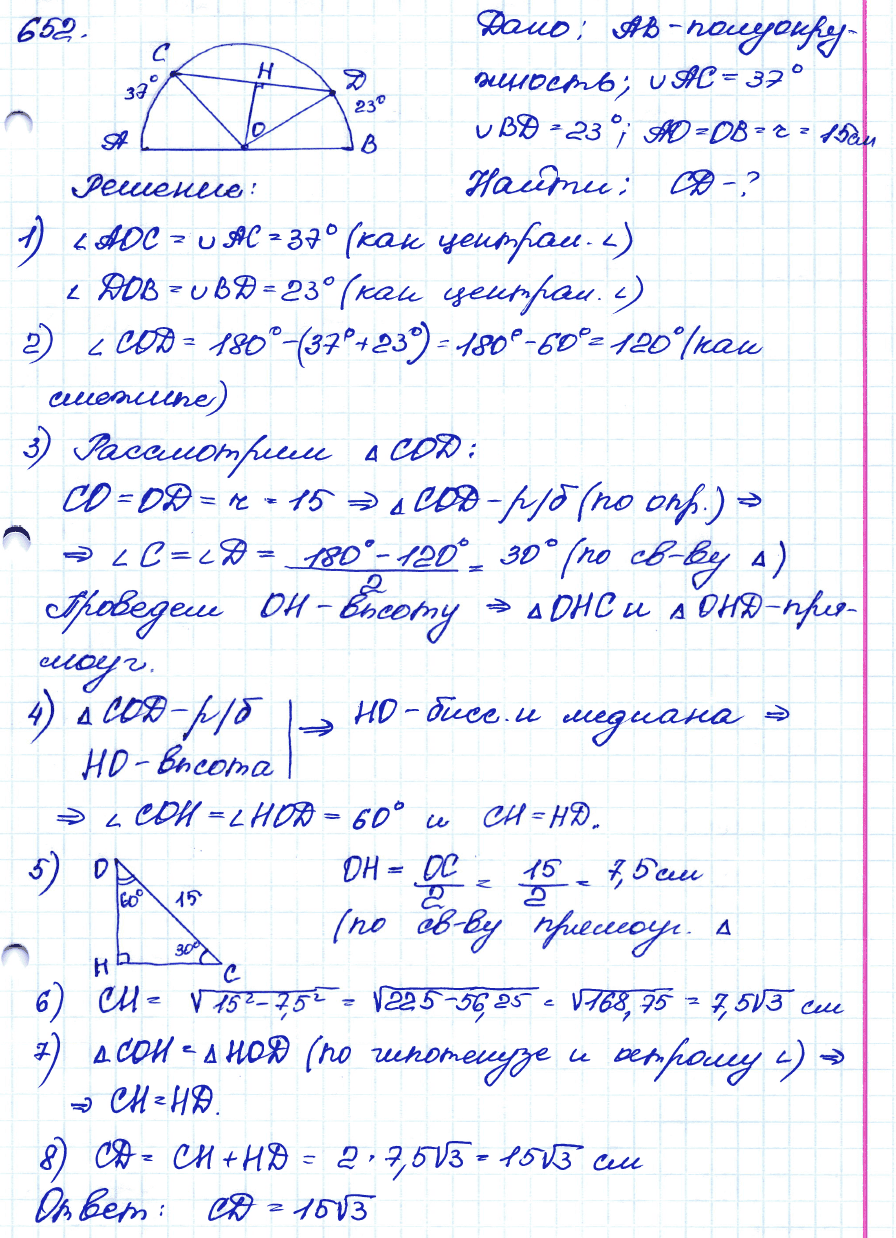 652.
Дано: AB-полуокру-
жность; ∪AC = 37°
∪BD = 23°; AO = OB = r = 15см
Найти: CD - ?
C
H
D
37°
23°
A
O
B
Решение:
1) ∠AOC = ∪AC = 37° (как централ. ∠)
∠DOB = ∪BD = 23° (как централ. ∠)
2) ∠COD = 180° - (37° + 23°) = 180° - 60° = 120° (как
смежные)
3) Рассмотрим △COD:
CO = OD = r = 15 ⇒ △COD - р/б (по опр.) ⇒
⇒ ∠C = ∠D = (180° - 120°)/2 = 30° (по св-ву △)
Проведем OH - высоту ⇒ △OHC и △OHD - пря-
моуг.
4) △COD - р/б | ⇒ HO - бисс. и медиана ⇒
HO - высота
⇒ ∠COH = ∠HOD = 60° и CH = HD.
5) OH = OC/2 = 15/2 = 7,5 см
(по св-ву прямоуг. △
O
60°
15
30°
H
C
6) CH = √(15² - 7,5²) = √(225 - 56,25) = √168,75 = 7,5√3 см
7) △COH = △HOD (по гипотенузе и острому ∠) ⇒
⇒ CH = HD.
8) CD = CH + HD = 2 · 7,5√3 = 15√3 см
Ответ: CD = 15√3